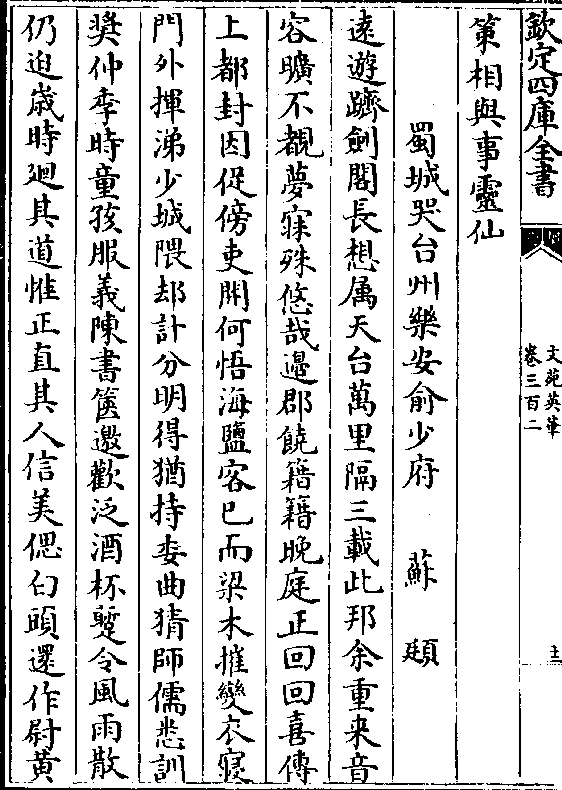 欽定四庫全書
文苑英華
卷三百二
策相與事靈仙
蜀城哭台州樂安俞少府 蘇頲
逺遊躋劍閣長想属天台萬里隔三載此邦余重来音
容曠不覩夢寐殊悠哉邉郡饒籍籍晚庭正回回喜傳
上都封因促傍吏開何悟海鹽客已而梁木摧變衣寢
門外揮涕少城隈却計分明得猶持委曲猜師儒悉訓
奬仲季時童孩服義陳書篋邀歡泛酒杯蹔令風雨散
仍迫歳時廻其道惟正直其人信美偲白頭還作尉黄